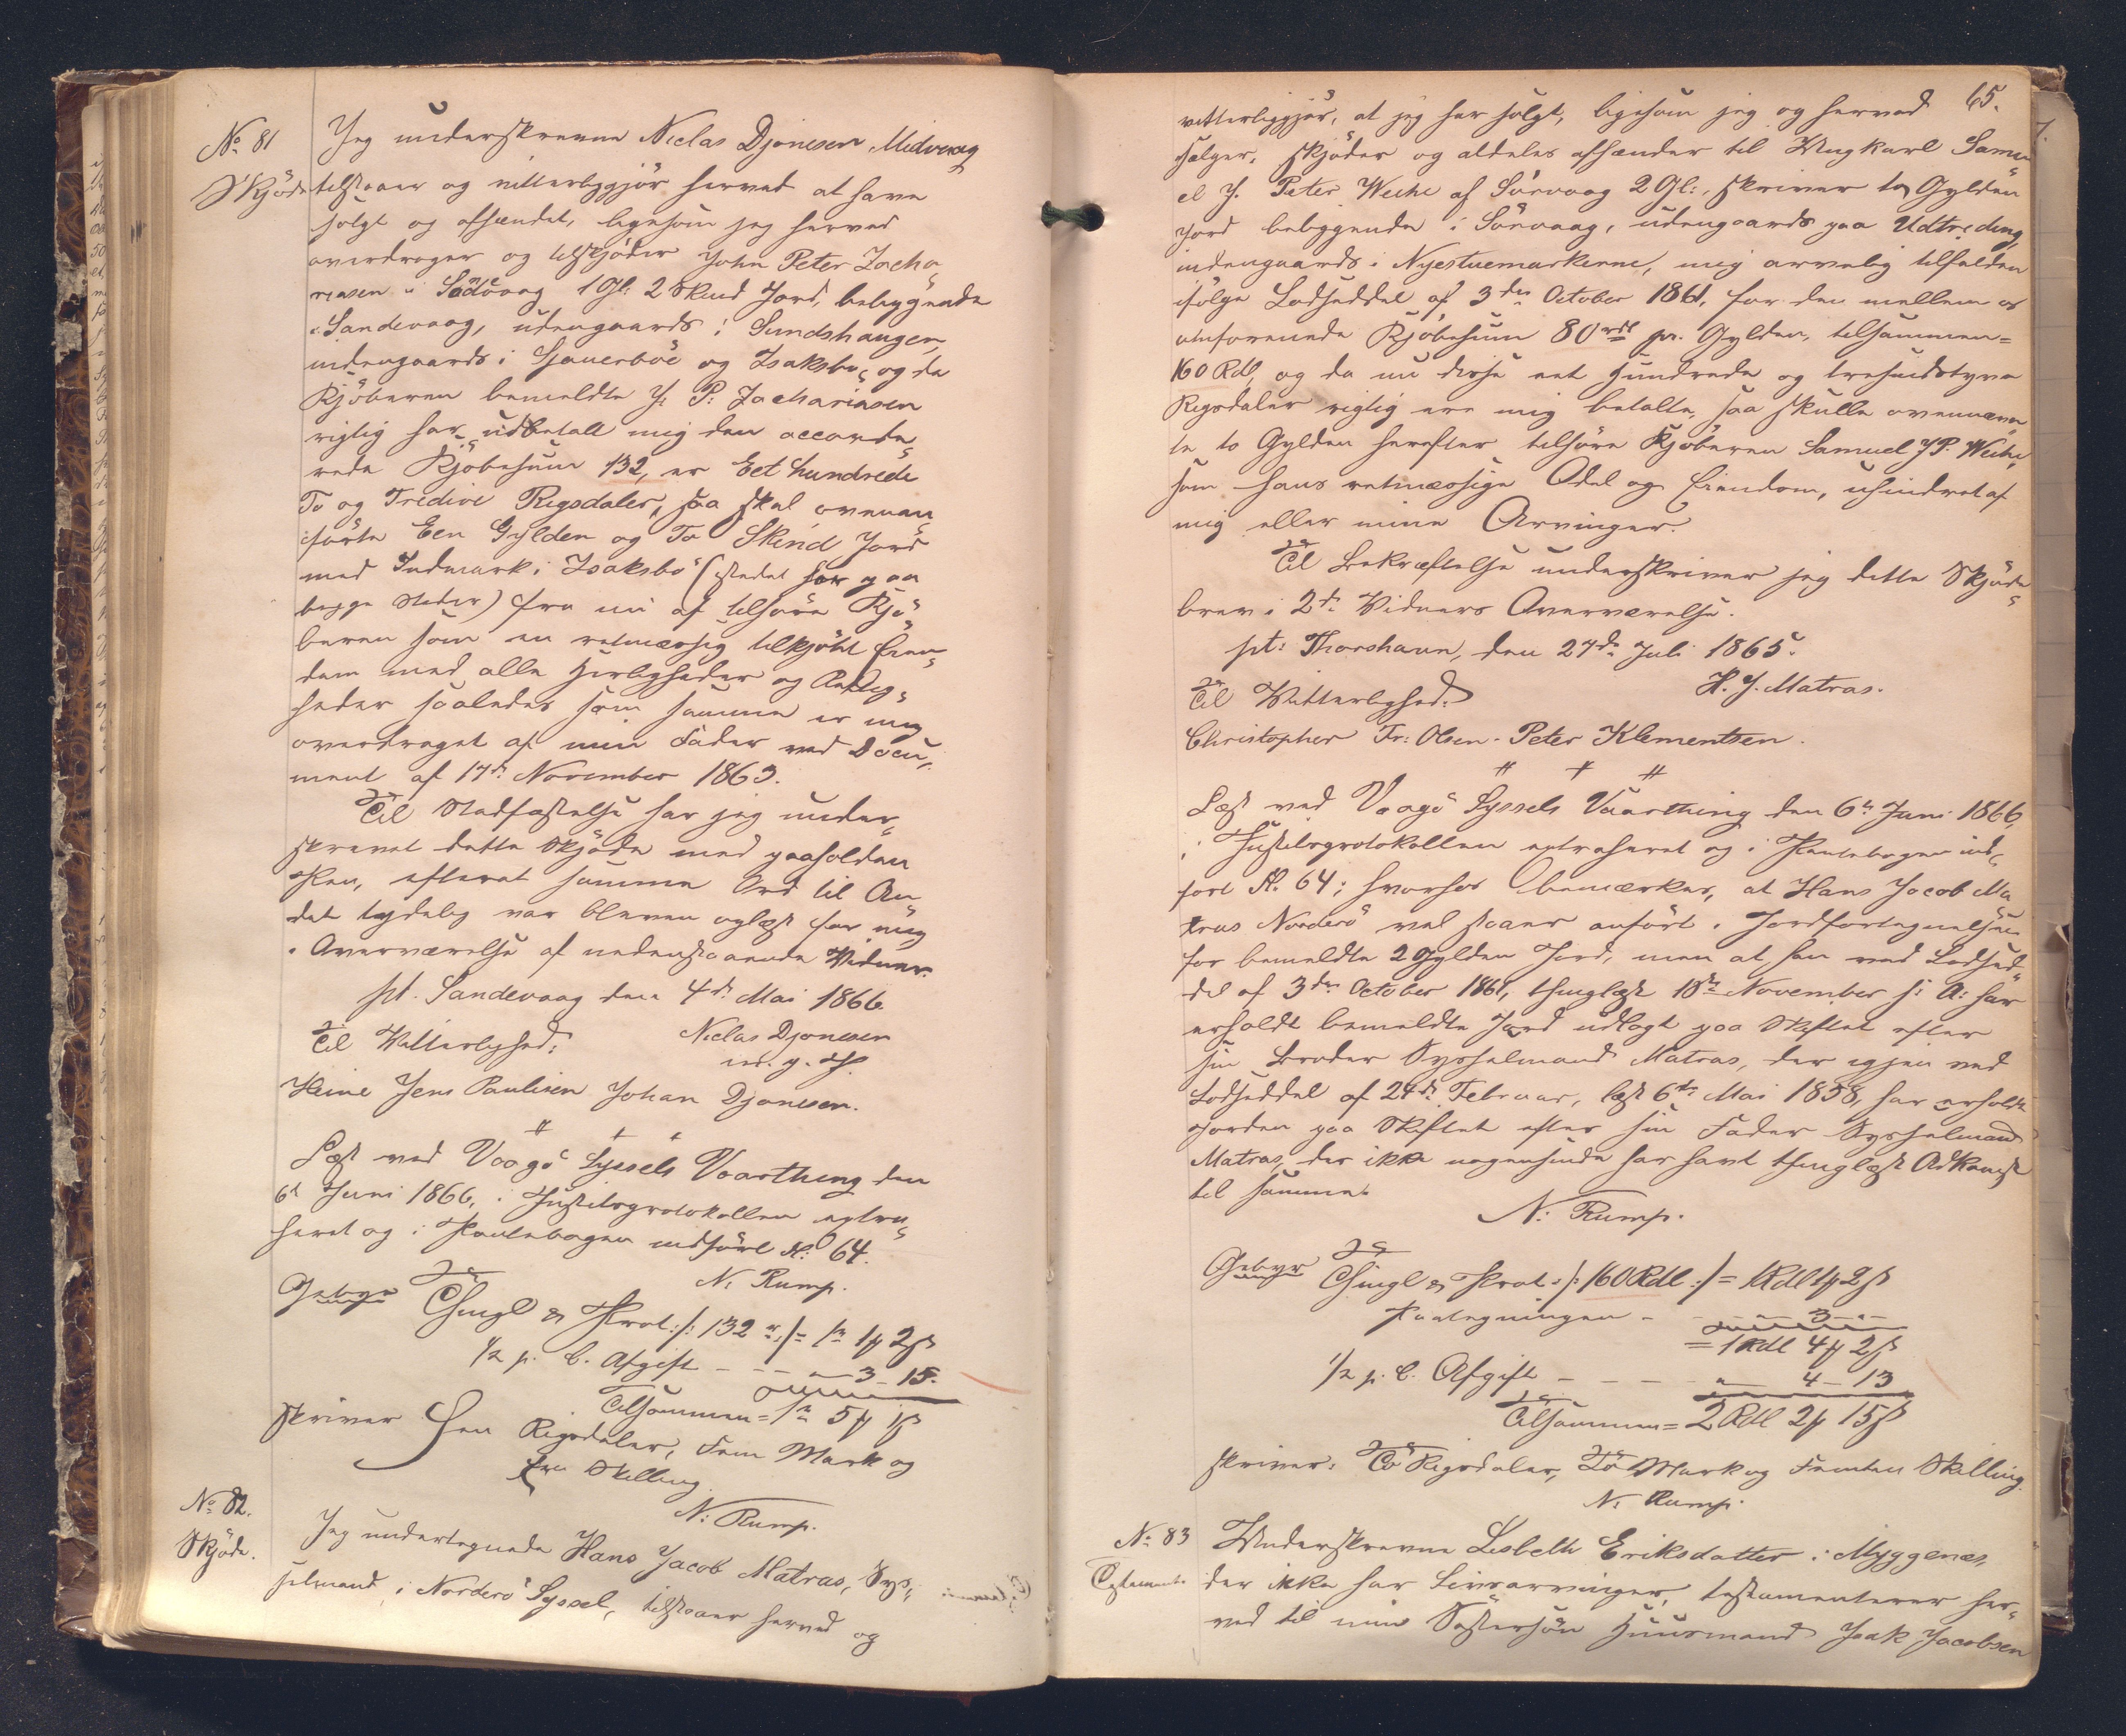 No 81
Skjöde
Jeg underskrevne Niclas Djonesen, Midvaag
tilstaaer og vitterliggjör herved at have
solgt og afhændet, ligesom jeg herved
overdrager og tilskjöder John Peter Zacha„
riasen i Sandevaag 1 Gl: 2 Skind Jord, beliggende
i Sandevaag, udengaards i Sundshaugen,
indengaards i Gjauerböe og Isaksbö, og da
Kjöberen bemeldte J: P: Zachariasen
rigtig har udbetalt mig den accorde„
rede Kjöbesum 132, er Eet hundrede
To og Tredive Rigsdaler, saa skal ovenan„
förte Een Gylden og To Skind Jord
med Indmark i Isaksbö (stedet har paa
begge Steder) fra nu af tilhöre Kjö„
beren som en retmæssig tilkjöbt Eien„
dom med alle Herligheder og Rettig„
heder saaledes som samme er mig
overdraget af min Fader ved Docu„
ment af 17de November 1863.
Til Stadfæstelse har jeg under„
skrevet dette Skjöde med paaholden
Pen, efterat samme Ord til An„
det tydelig var bleven oplæst for mig
i Overværelse af nedenstaaende Vidner.
pt. Sandevaag den 4de Mai 1866.
Til Vitterlighed: Niclas Djonesen
m. p. P.
Heine Jens Paulisen Johan Djonesen.
Læst ved Vaagö Syssels Vaarthing den
6te Juni 1866, i Justitsprotokollen extra„
heret og i Pantebogen indfört No: 64.
N: Rump.
Gebyr Thingl & Prot:/: 132 r:/= 1r 1 2
1/2 p. C. Afgift - - - - 3 - 15.
Tilsammen = 1r 5 1
skriver Een Rigsdaler, Fem Mark og
Skilling.
N: Rump.
No 82.
Skjöde.
Jeg undertegnede Hans Jacob Matras, Sys„
selmand i Norderö Syssel, tilstaaer herved og
65.
vitterliggjör, at jeg har solgt, ligesom jeg og herved
sælger, skjöder og aldeles afhænder til Ungkarl Samu„
el J. Peter Weihe af Sörvaag 2 Gl:, skriver to Gylden
Jord beliggende i Sörvaag, udengaards paa Udtreding,
indengaards i Nyestuemarkerne, mig arvelig tilfalden
ifölge Lodseddel af 3die October 1861, for den mellem os
omforenede Kjöbesum 80 rdl pr. Gylden, tilsammen =
160 Rdl, og da nu disse eet Hundrede og tresindstyve
Rigsdaler rigtig ere mig betalte, saa skulle ovennævn„
te to Gylden herefter tilhöre Kjöberen Samuel J P. Weihe,
som hans retmæssige Odel og Eiendom, uhindret af
mig eller mine Arvinger.
Til Bekræftelse underskriver jeg dette Skjöde„
brev i 2de Vidners Overværelse.
pt: Thorshavn, den 27de Juli 1865.
H. J. Matras.
Til Vitterlighed:
Christopher Fr: Olsen. Peter Klementsen.
Læst ved Vaagö Syssels Vaarthing den 6te Juni 1866,
i Justitsprotokollen extraheret og i Pantebogen ind„
fört No. 64; hvorhos bemærkes, at Hans Jacob Ma„
tras Norderö vel staaer anfört i Jordfortegnelsen
for bemeldte 2 Gylden Jord, men at han ved Lodsed„
del af 3die October 1861, thinglæst 18de November s: A: har
erholdt bemeldte Jord udlagt paa Skiftet efter
sin Broder Sysselmand Matras, der igjen ved
Lodseddel af 24de Februar, læst 6te Mai 1858, har erholdt
Jorden paa Skiftet efter sin Fader Sysselmand
Matras, der ikke nogensinde har havt thinglæst Adkomst
til samme.
N: Rump.
Gebyr Thingl & Prot:/: 160 Rdl:/= 1 Rdl 1 2
Paategningen - - - - 3 -
= 1 Rdl 4 2
1/2 p. C. Afgift - - - - 4 - 13
Tilsammen = 2 Rdl 2 15
skriver: To Rigsdaler, To Mark og Femten Skilling.
N: Rump.
No 83
Testament.
Underskrevne Lisbeth Eriksdatter i Myggenæs,
der ikke har Livsarvinger, testamenterer her„
ved til min Söstersön Huusmand Isak Jacobsen